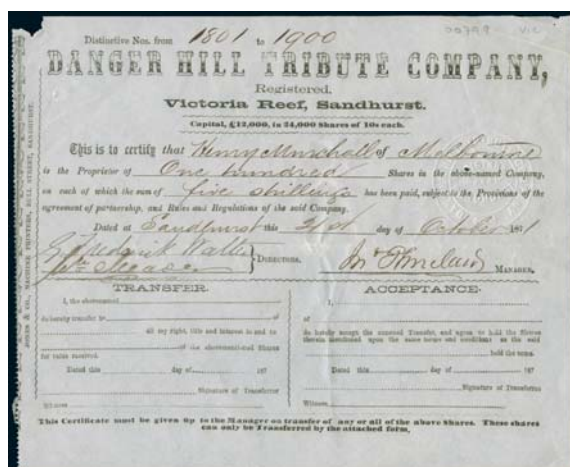 00799 VIC
Distinctive Nos. from 1801 to 1900
DANGER HILL TRIBUTE COMPANY,
Registered.
Victoria Reef, Sandhurst.
Capital, £12,000, in 24,000 Shares of 10s each.
This is to certify that Henry Marshall of Melbourne
is the Proprietor of One hundred Shares in the above-named Company,
on each of which the sum of five shillings has been paid, subject to the Provisions of the
agreement of partnership, and Rules and Regulations of the said Company.
Dated at Sandhurst this day of October 1871
Frederick
DIRECTORS.
MANAGER.
TRANSFER.
I, the abovenamed
do hereby transfer to of
all my right, title and interest in and to
of the abovementioned Shares
for value received.
Dated this day of 187
Signature of Transferor
Witness
ACCEPTANCE.
I,
of
do hereby accept the annexed Transfer, and agree to hold the Shares
therein mentioned upon the same terms and conditions as the said
held the same.
Dated this day of 187
Signature of Transferee
Witness
This Certificate must be given up to the Manager on transfer of any or all of the above Shares. These shares
can only be Transferred by the attached form.
JONES & CO., MACHINE PRINTERS, BULL STREET, SANDHURST.